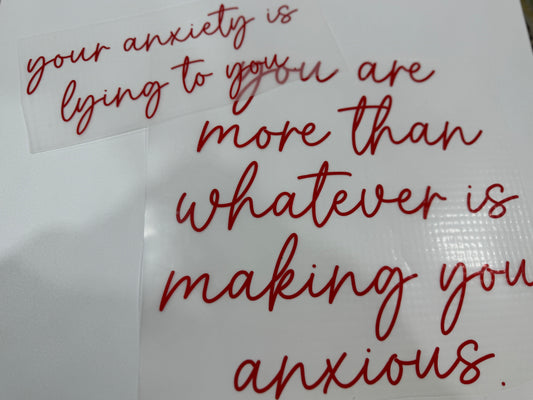 your anxiety is
lying to you
you are
more than
whatever is
making you
anxious.